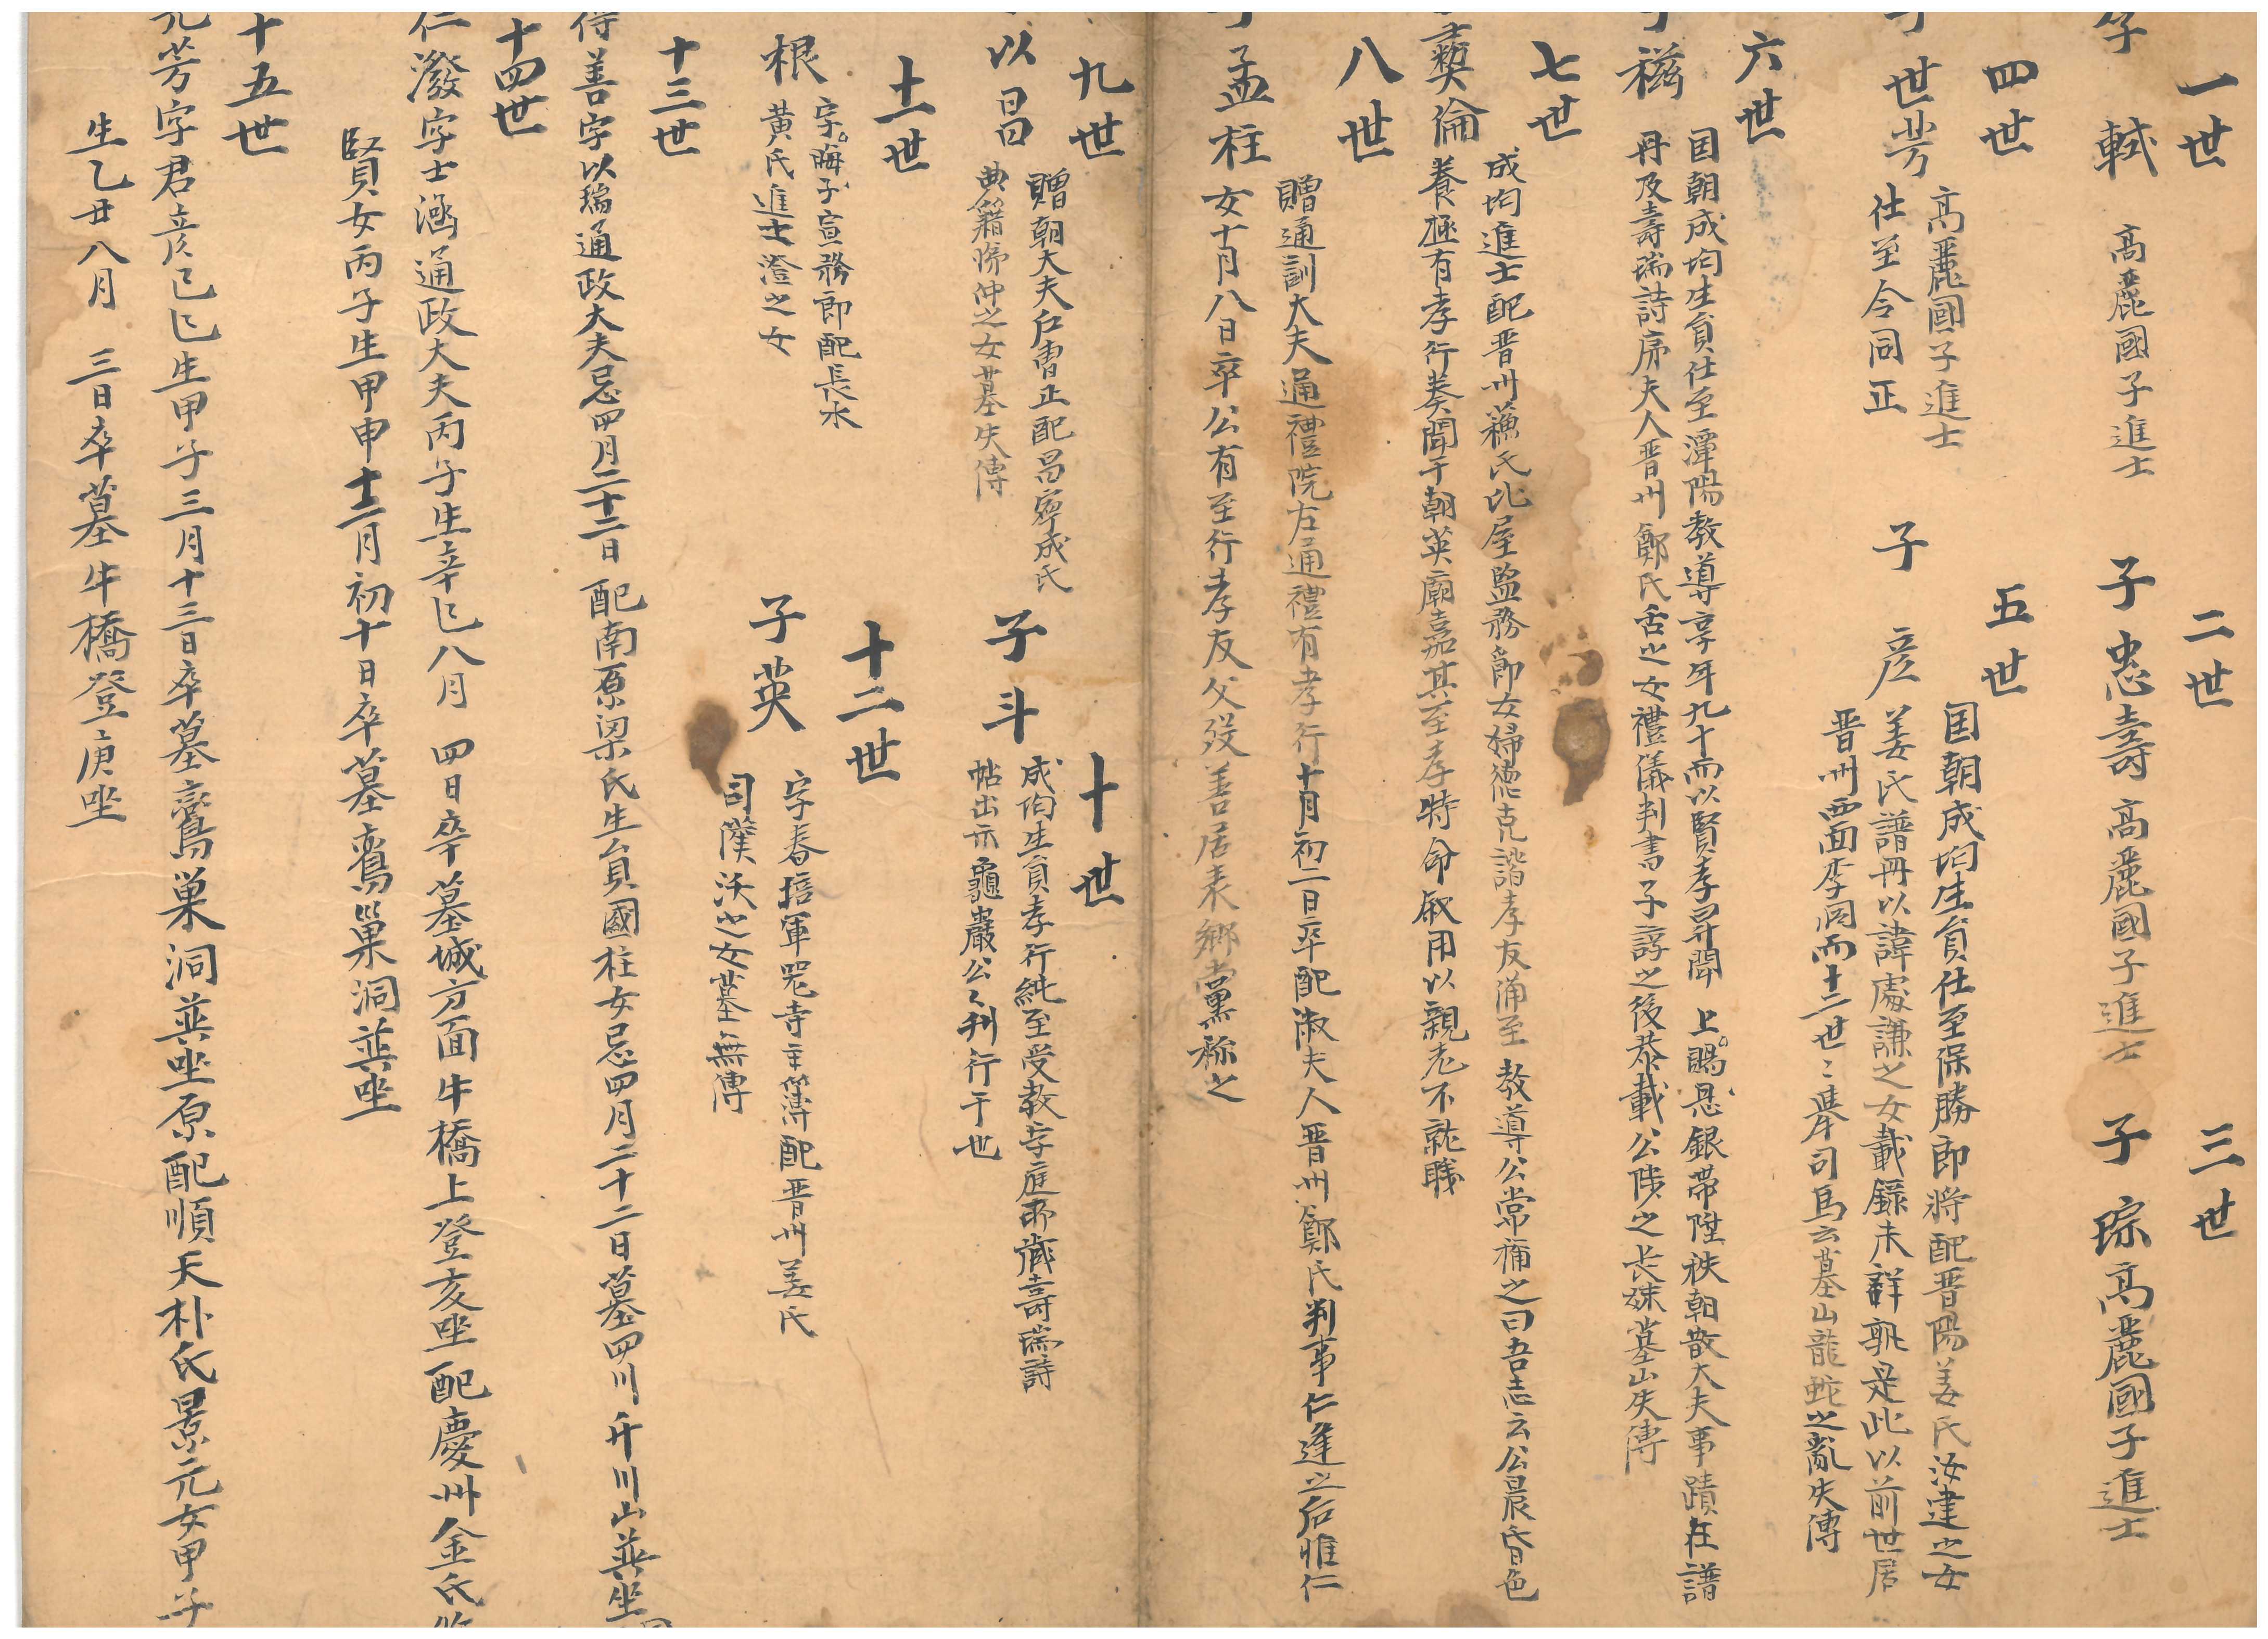 一世
李 軾 高麗國子進士
二世
子 忠壽 高麗國子進士
三世
子 琮 高麗國子進士
四世
子 世芳 高麗國子進士
仕至令同正
五世
子 彦 国朝成均生負仕至保勝郎將配晋陽姜氏汝建之女
姜氏譜冊以諱處謙之女載錄未詳孰是此以前世居
晋州西面李洞而十二世〻擧司馬云墓山龍蛇之亂失傳
六世
子 磁 国朝成均生負仕至潭陽敎導享年九十而以賢孝昇聞 上賜恩銀帶陞秩朝散大夫事蹟在譜
冊及壽瑞詩序夫人晋州鄭氏舌之女禮儀判書子諄之後恭載公陟之長妹墓山失傳
七世
彛倫 成均進士配晋州蘓氏比屋監務郎女婦德克諧孝友誦至 敎導公常稱之曰吾志云公晨昏色
養極有孝行葵聞于朝英廟嘉其至孝特命叙用以親老不就職
八世
子 孟柱 贈通訓大夫通禮院左通禮有孝行十月初二日卒配淑夫人晋州鄭氏判事仁逢之后惟仁
女十月八日卒公有至行孝友父歿善居表鄉黨稱之
九世
以昌 贈朝大夫仁曹正配昌寧成氏
典籍悌仲之女墓失傳
十世
子 斗 成均生負孝行純至受敎幸庭所歲壽瑞詩
帖出示龜巖公〻刋行于世
十一世
根 字晦子宣務郎配長水
黃氏進士澄之女
十二世
子 英 字春培軍器寺主簿配晋州姜氏
司僕沃之女墓無傳
十三世
得善字以瑞通政大夫忌四月二十二日 配南原梁氏生負國柱女忌四月二十二日墓四川斤川山葬坐
十四世
仁潑字士涵通政大夫丙子生辛巳八月 四日卒墓城方面牛橋上登亥坐配慶州金氏
賢女丙子生甲申十二月初十日卒墓鸞巢洞葬坐
十五世
元芳字君彦己巳生甲子三月十三日卒墓鸞巢洞葬坐原配順天朴氏景元女甲子
生乙丑八月 三日卒墓牛橋登庚坐